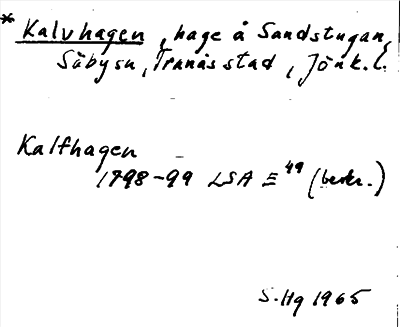 * Kalvhagen, hage å Sandstugan,
Säbysn, Tranås stad, Jönk.l.
Kalfhagen
1798-99 LSA E 49 (beskr.)
S. Hg 1965